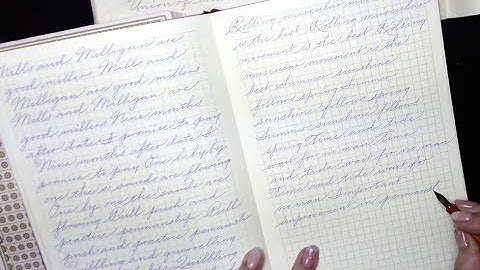 Union of
Mills and Milligan are
good millers Mills and
Milligan are good millers
Mills and Milligan are
good millers Nine months
after date I promise to pay
Nine months after date I
promise to pay One by by by
one the s sands are flowing
One by one the sands are
flowing Will push and
practice penmanship Will
push and practice penmanship
Quibbling and quarreling
Quibbling
Rolling muscular
is the best Rolling muscular
movement is the best Rolling
muscular movement is the
best Summer sunshine
follows spring Summer
sunshine follows spring
Summer sunshine follows
spring Time and tide
wait for no man Time
and tide wait for no man
Time and tide wait for
no man Important
improvement in penmansh